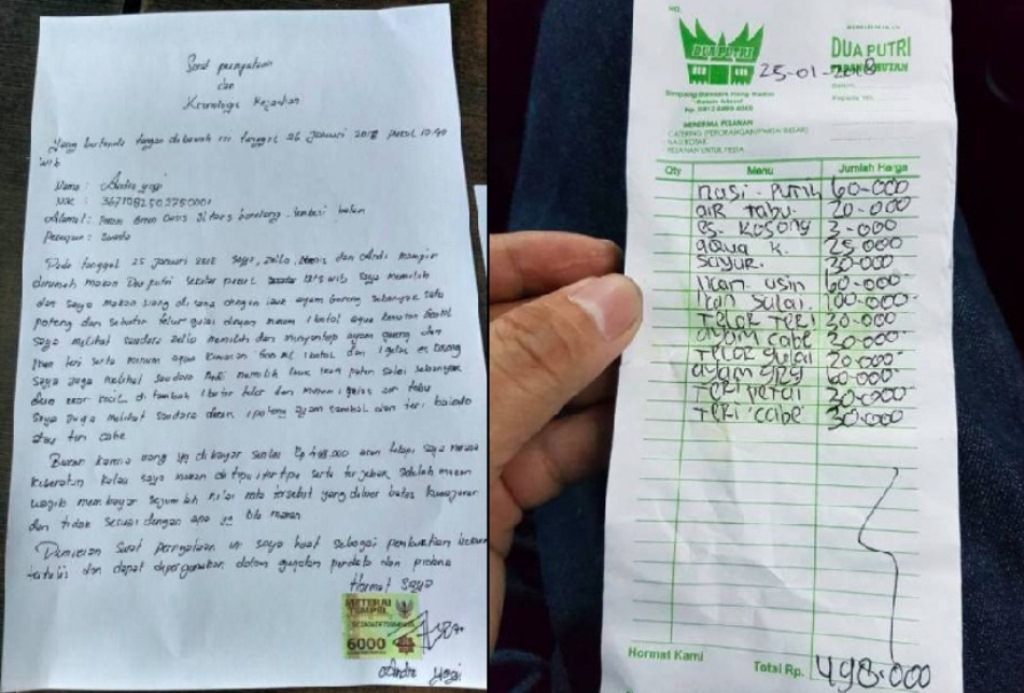 Surat pernyataan
dan
Kronologis Kejadian
Yang bertanda tangan dibawah ini tanggal 26 Januari 2018 pukul 10.40
wib
Nama : Andra yogi
NIK : 3671082502750001
Alamat :
Pada tanggal 25 Januari 2018 saya, zello, dan Andi mampir
dirumah makan Dua putri sekitar pukul wib saya memilih
dan saya makan siang di sana dengan lauk ayam goreng sebanyak satu
potong dan sebutir telur gulai dengan minum 1 botol aqua
saya melihat saudara zello memilih dan menyantap ayam goreng dan
ikan teri serta minum aqua kemasan 600 ml 1 botol dan 1 gelas es kosong
saya juga melihat saudara Andi memilih lauk ikan patin salai sebanyak
dua ekor kecil di tambah 1 butir telur dan minum 1 gelas air tabu
saya juga melihat saudara 1 potong ayam sambal dan teri balado
atau teri cabe
Bukan karena uang yg di bayar senilai Rp 498.000 akan tetapi saya merasa
keberatan kalau saya makan di tipu serta terjebak setelah makan
wajib membayar sejumlah nilai tersebut yang diluar batas kewajaran
dan tidak sesuai dengan apa yg kita makan
Demikian surat pernyataan ini saya buat sebagai
tertulis dan dapat dipergunakan dalam gugatan perdata dan pidana
Hormat saya
METERAI
TEMPEL
6000
Andra Yogi
NO.
DUA PUTRI
DUA PUTRI
25-01-2018
Kepada Yth.
MENERIMA PESANAN
CATERING (PERORANGAN/PARTAI BESAR)
NASI KOTAK
PESANAN UNTUK PESTA
Qty Menu Jumlah Harga
nasi - Putih 60-000
aiR Tabu. 20-000
es. Kosong 3-000
gaya k. 25.000
Sayur. 30-000
Ikan. asin 60-000
Ikan Salai. 100-000-
TeLor Teri 30-000
ayam cabe 30-000
TeLor gulai 20.000
ayam grg 60-000
Teri petai 30-000
TeRi cabe 30.000
Hormat Kami Total Rp. 498.000